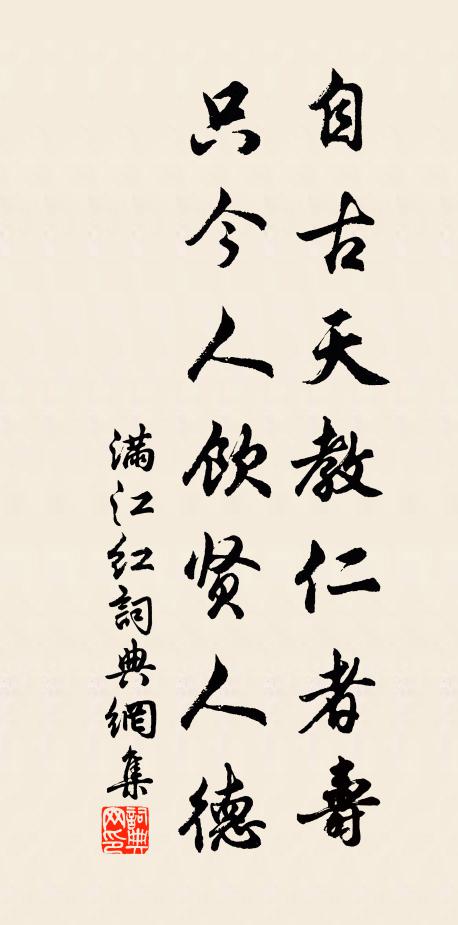 自古天教仁者壽
只今人饮贤人德
满江红詞典網集
詞典
网印